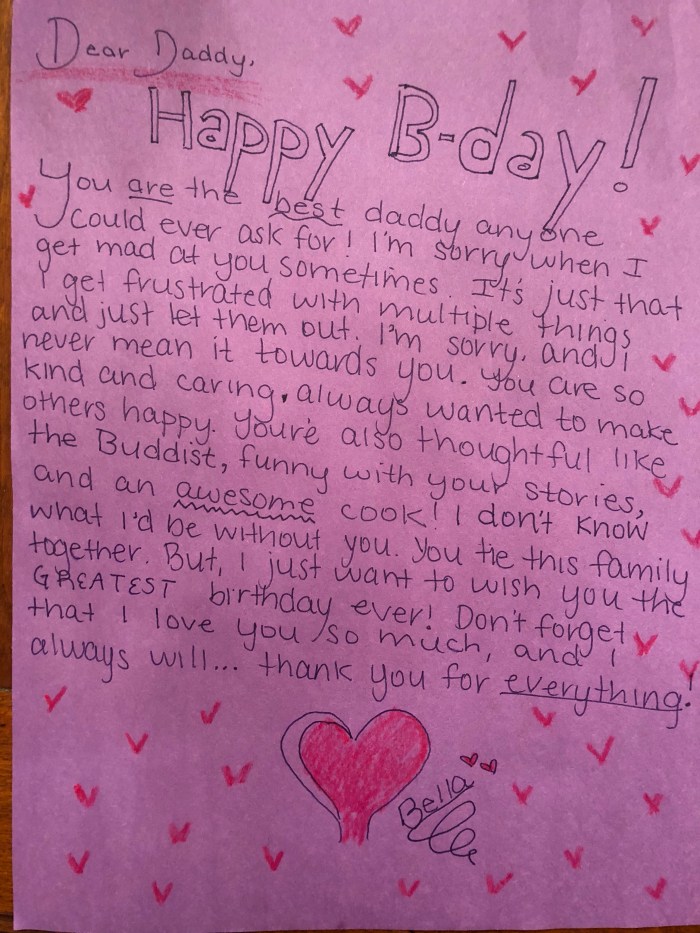 Dear Daddy,
Happy B-day!
You are the best daddy anyone
could ever ask for! I'm sorry when I
get mad at you sometimes. It's just that
I get frustrated with multiple things
and just let them out. I'm sorry, and I
never mean it towards you. You are so
kind and caring, always wanted to make
others happy. You're also thoughtful like
the Buddist, funny with your stories,
and an awesome cook! I don't know
what I'd be without you. You tie this family
together. But, I just want to wish you the
GREATEST birthday ever! Don't forget
that I love you so much, and I
always will... thank you for everything!
Bella